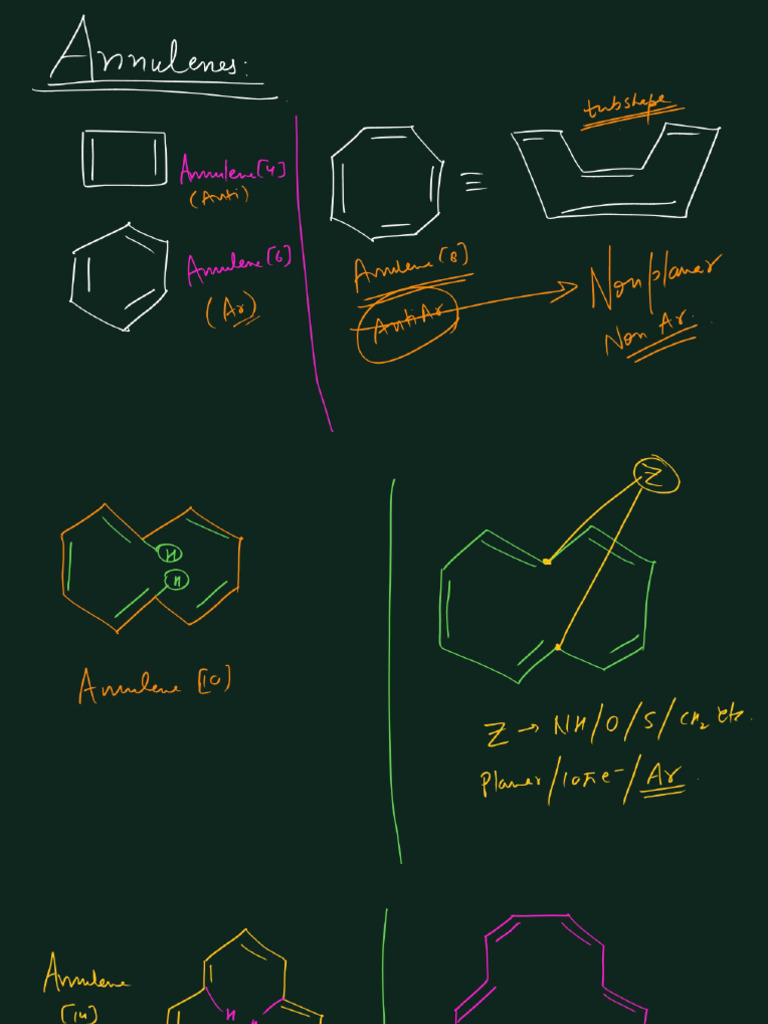 Annulenes:
tubshape
Annulene[4]
(Anti)
Annulene[6]
(Ar)
Annulene[8]
AntiAr
Nonplaner
Non Ar.
H
H
Annulene [10]
Z
Z → NH/O/S/CH₂ etc.
Planer/10πe⁻/Ar
Annulene
[14]
H